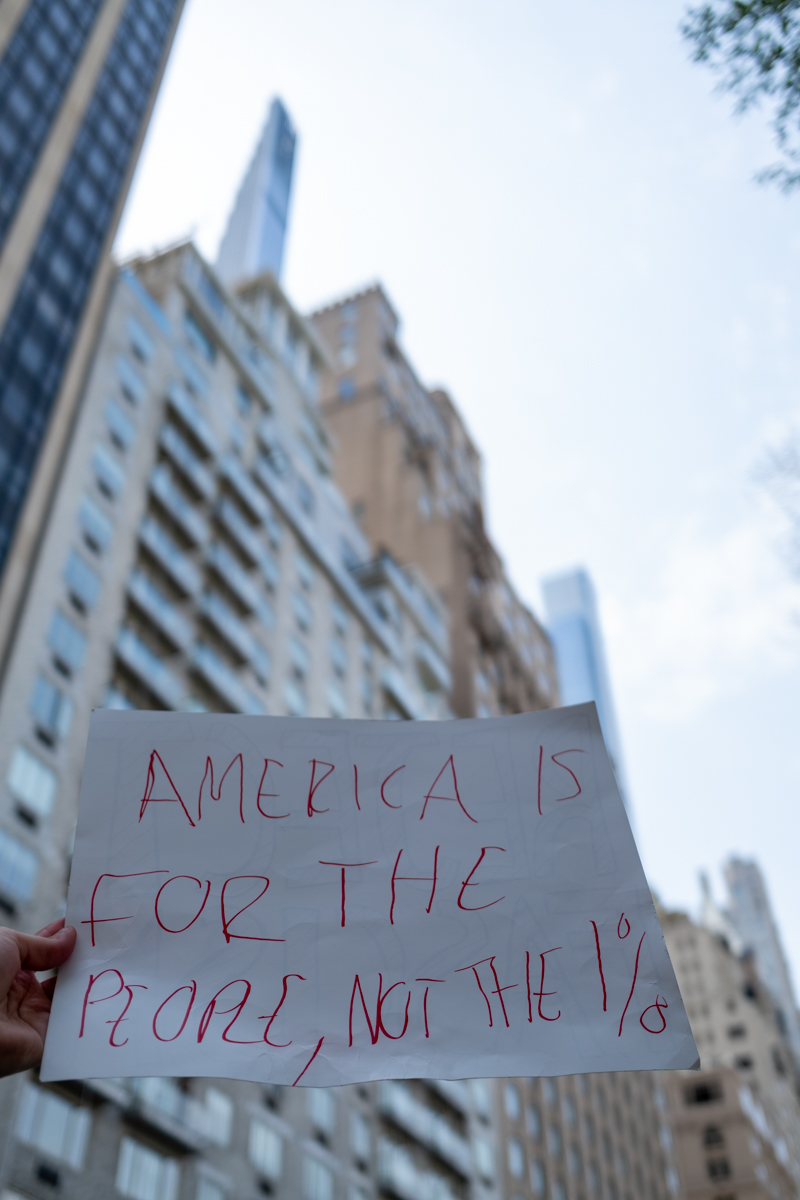 AMERICA IS
FOR THE
PEOPLE, NOT THE 1%